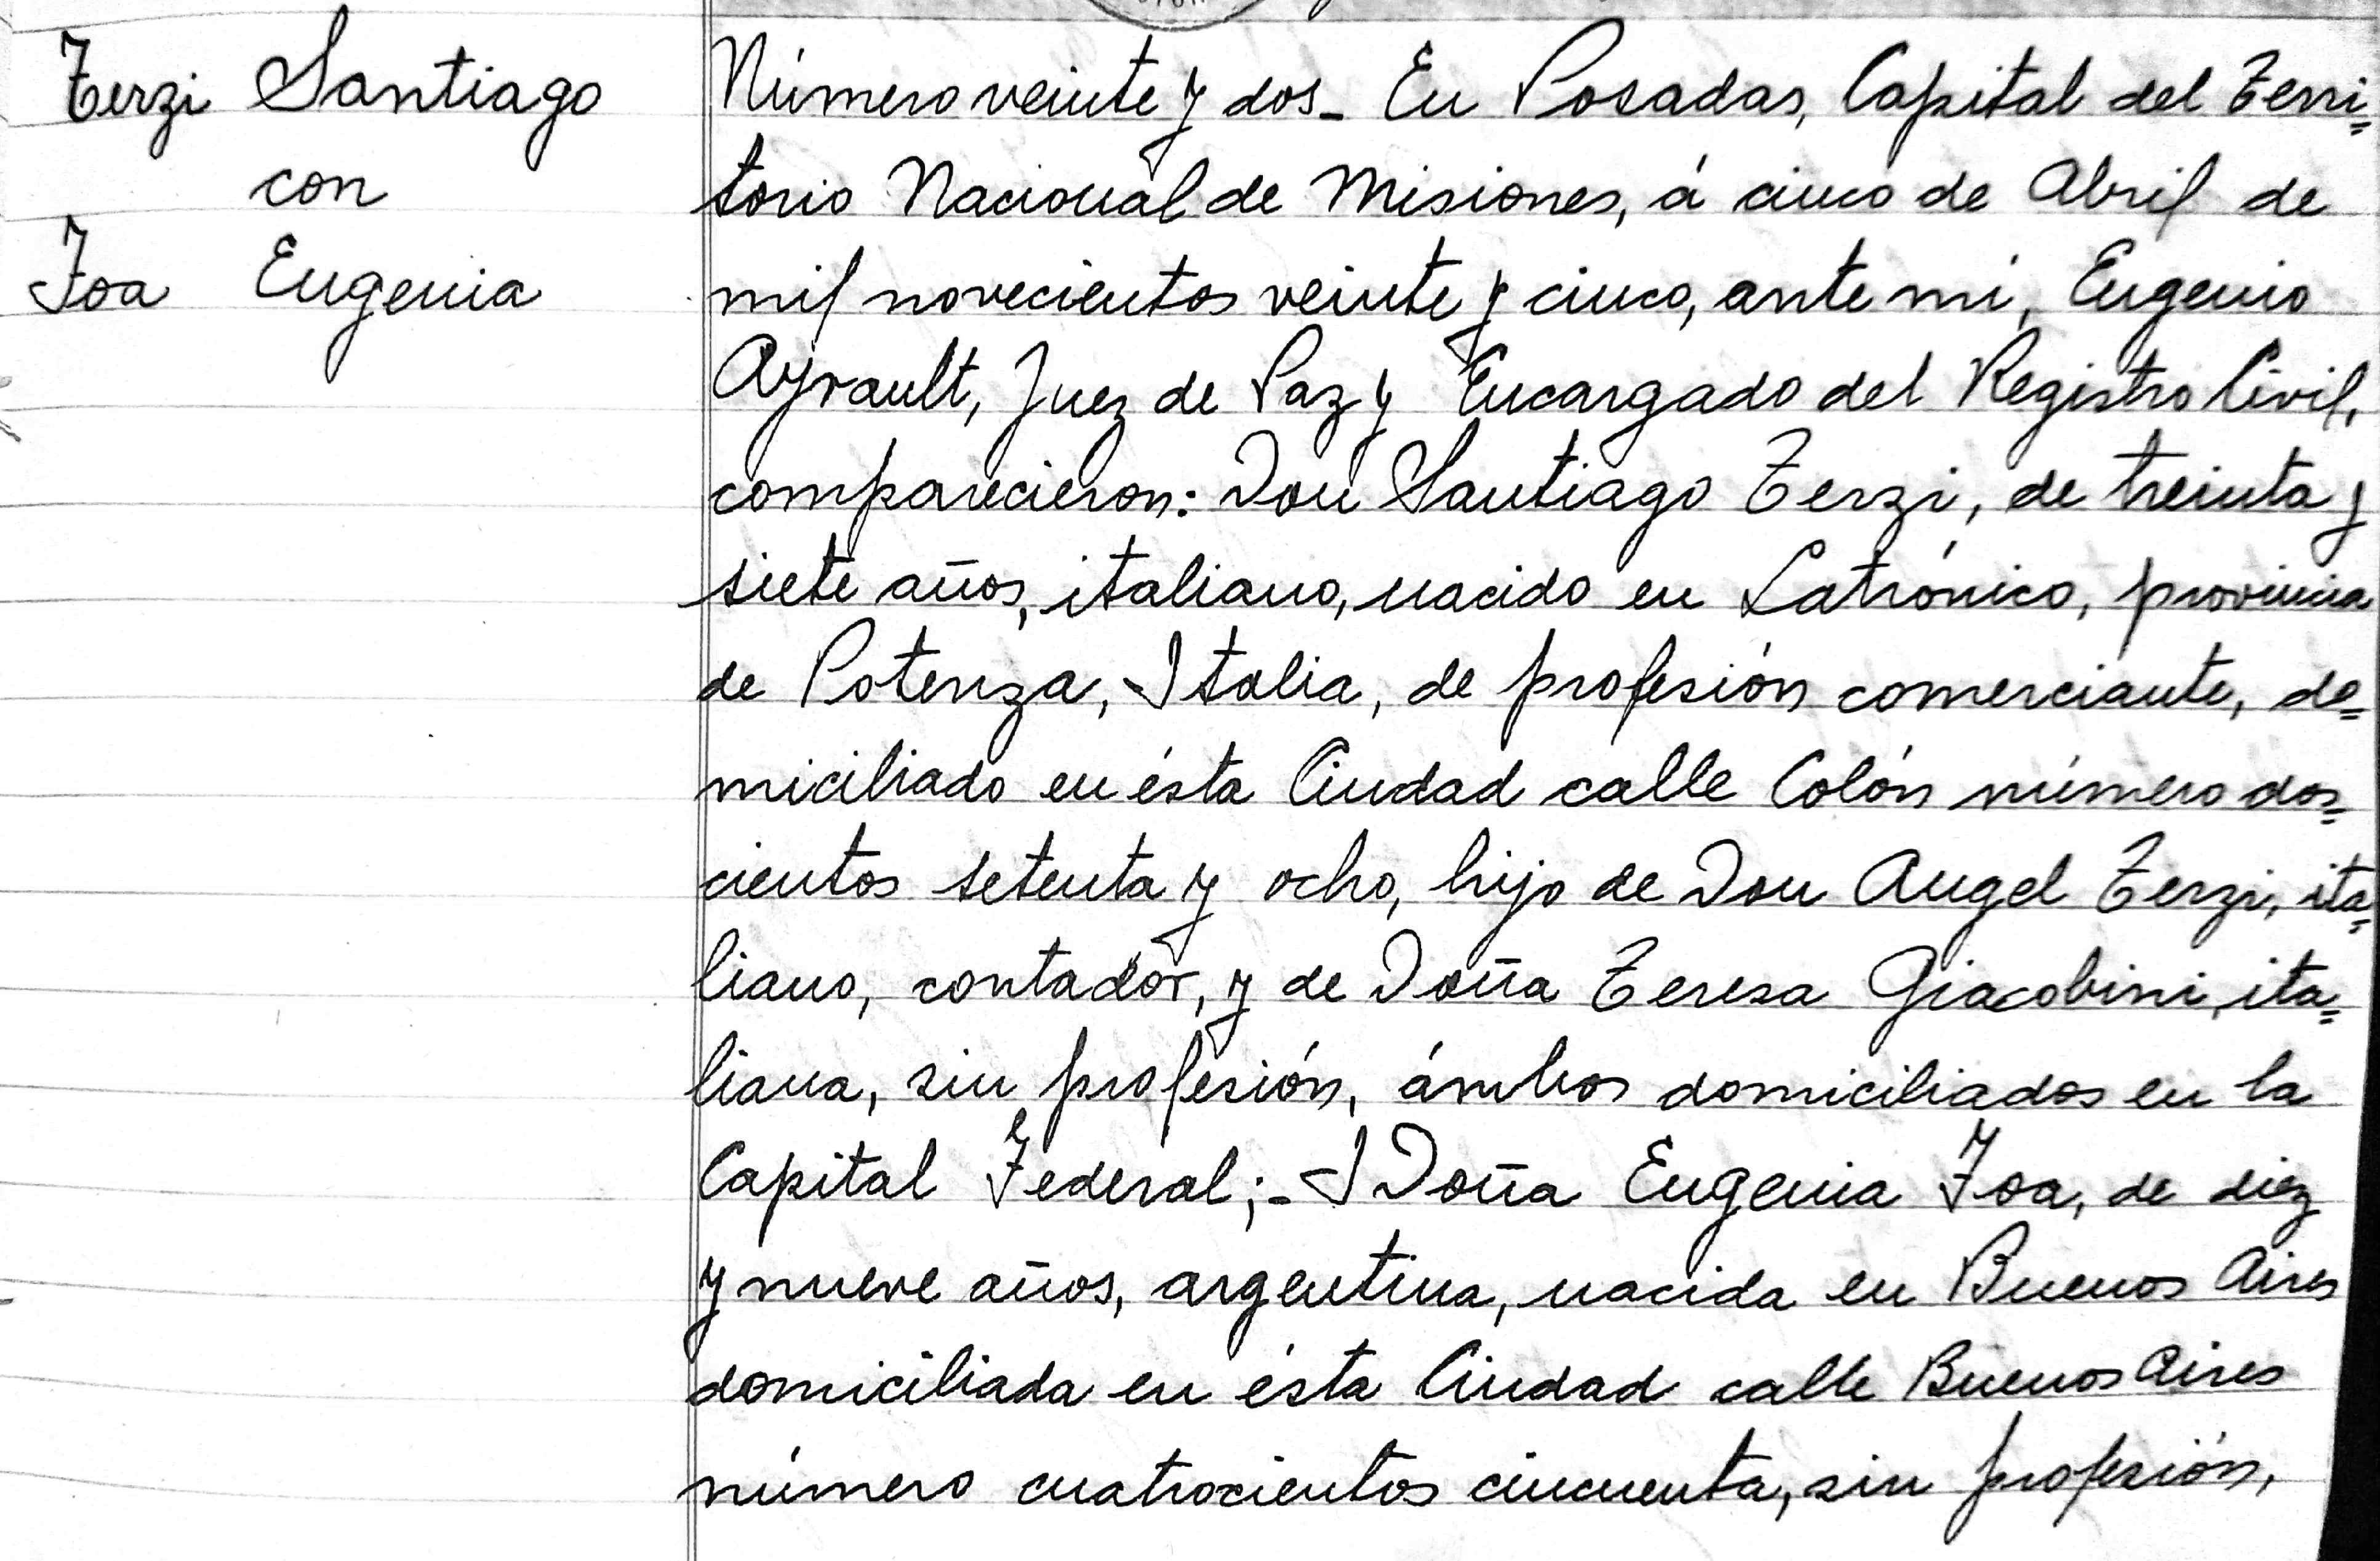 Terzi Santiago
con
Foa Eugenia
Número veinte y dos_ En Posadas, Capital del Terri=
torio Nacional de Misiones, á cinco de Abril de
mil novecientos veinte y cinco, ante mí, Eugenio
Ayrault, Juez de Paz y Encargado del Registro Civil,
comparecieron: Don Santiago Terzi, de treinta y
siete años, italiano, nacido en Latrónico, provincia
de Potenza, Italia, de profesión comerciante, do=
miciliado en ésta Ciudad calle Colón número dos=
cientos setenta y ocho, hijo de Don Angel Terzi, ita=
liano, contador, y de Doña Teresa Giacobini, ita=
liana, sin profesión, ámbos domiciliados en la
Capital Federal;- I Doña Eugenia Foa, de diez
y nueve años, argentina, nacida en Buenos Aires
domiciliada en ésta Ciudad calle Buenos Aires
número cuatrocientos cincuenta, sin profesión,